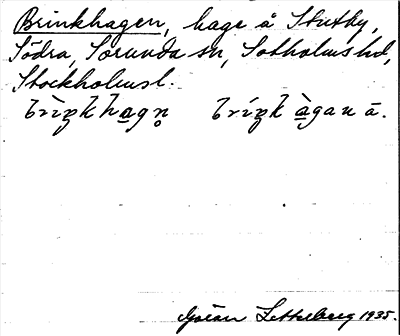 Brinkhagen, hage å Stutby,
Södra, Sorunda sn, Sotholms hd,
Stockholms l.
brìŋkhagn̥ bríŋk àgan ā.
Göran Setterberg 1935.